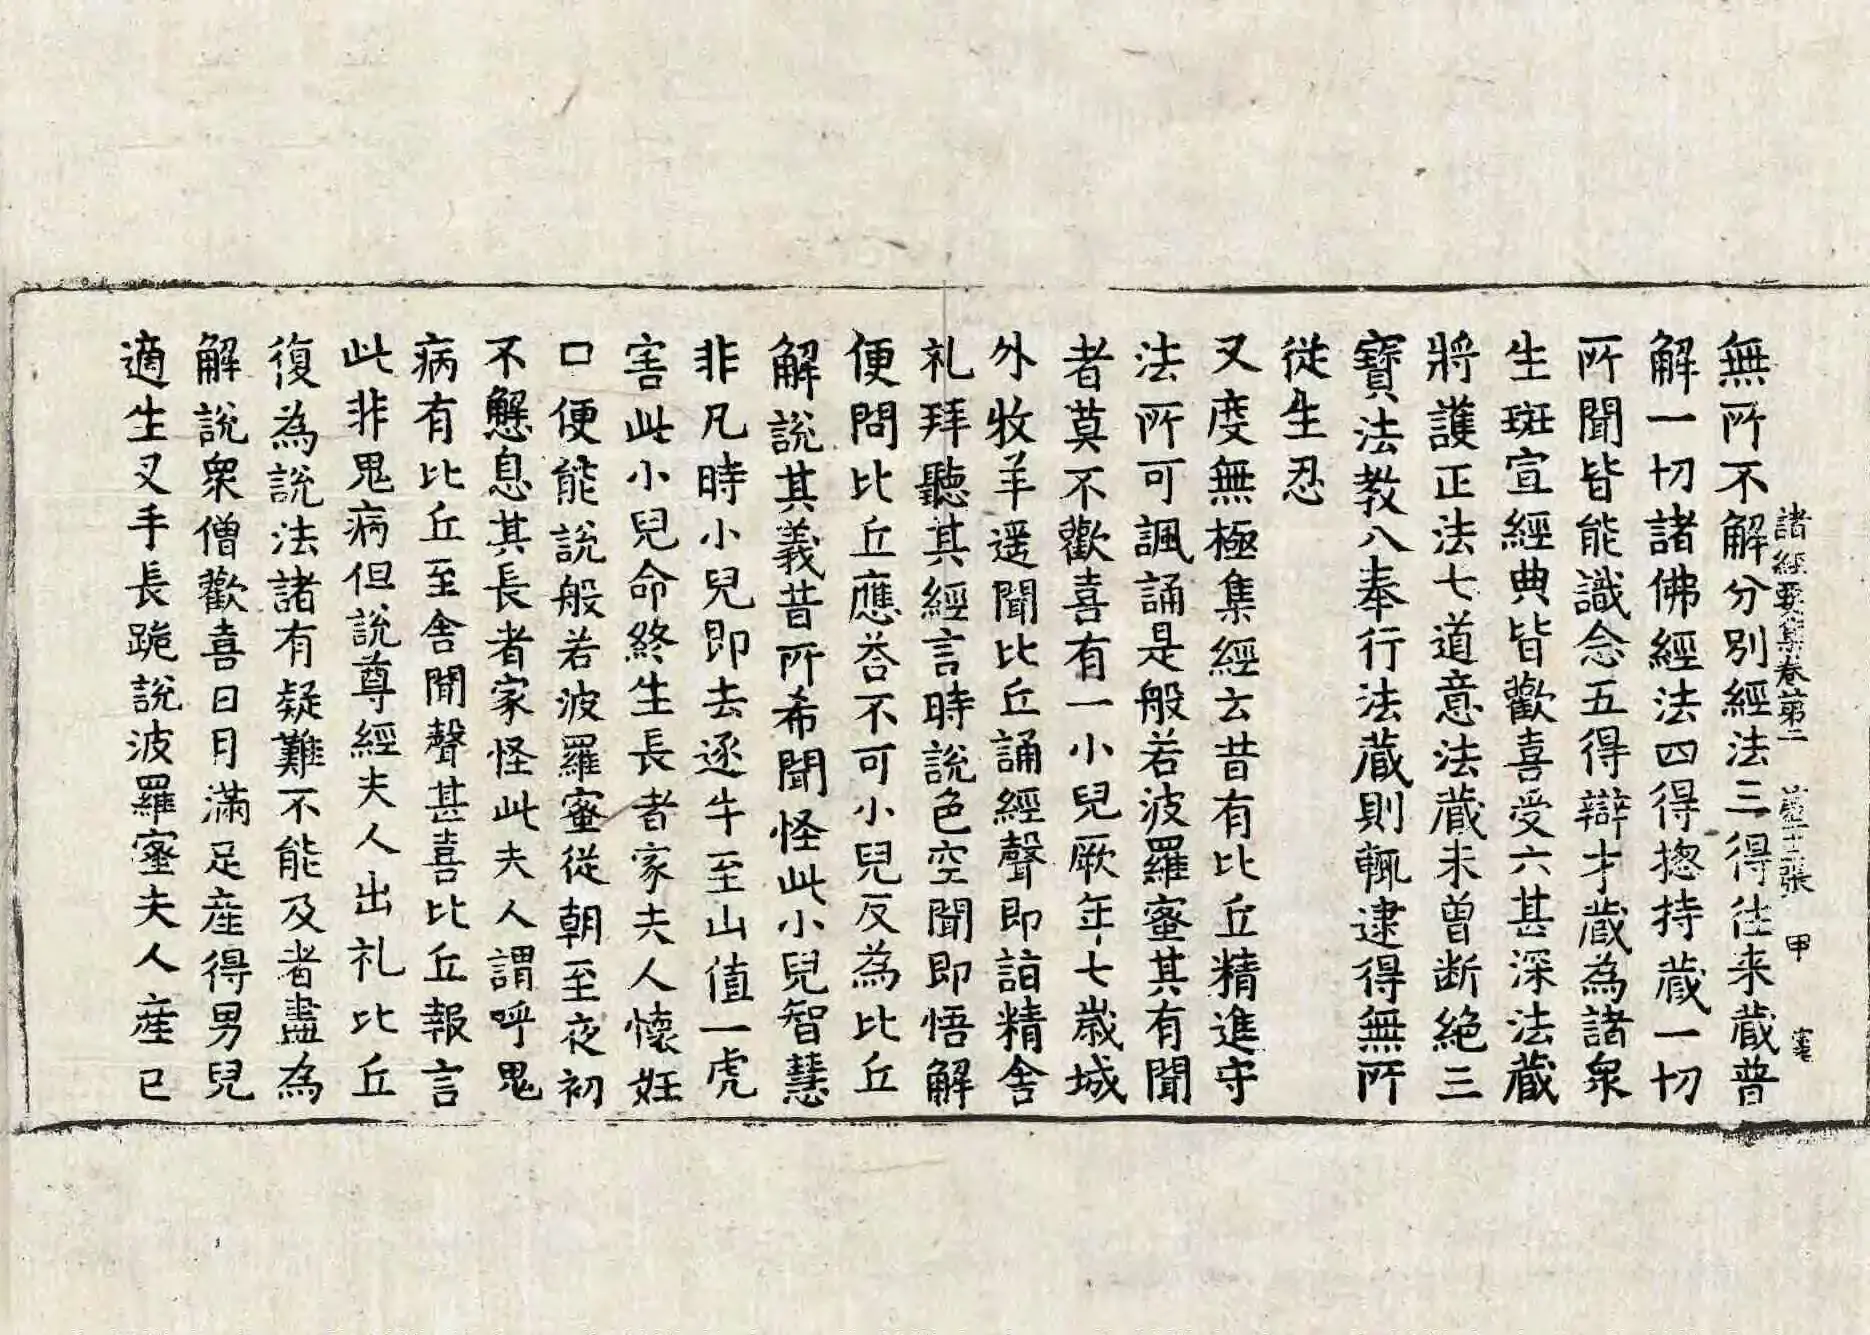 諸經要集卷苐二 苐十二張 甲
無所不解分別經法三得往来蔵普
解一切諸佛經法四得揔持蔵一切
所聞皆能識念五得辯才蔵為諸衆
生班宣經典皆歡喜受六甚深法蔵
將護正法七道意法蔵未曾断絶三
寶法教八奉行法蔵則輒逮得無所
従生忍
又度無極集經云昔有比丘精進守
法所可諷誦是般若波羅蜜其有聞
者莫不歡喜有一小兒厥年七歳城
外牧羊遥聞比丘誦經聲即詣精舎
礼拜聽其經言時說色空聞即悟解
便問比丘應荅不可小兒反為比丘
解說其義昔所希聞怪此小兒智慧
非凡時小兒即去逐牛至山值一虎
害此小兒命終生長者家夫人懐妊
口便能說般若波羅蜜従朝至夜初
不懈息其長者家怪此夫人謂呼鬼
病有比丘至舎聞聲甚喜比丘報言
此非鬼病但說尊經夫人出礼比丘
復為說法諸有疑難不能及者盡為
解說衆僧歡喜日月滿足産得男兒
適生叉手長跪說波羅蜜夫人産已